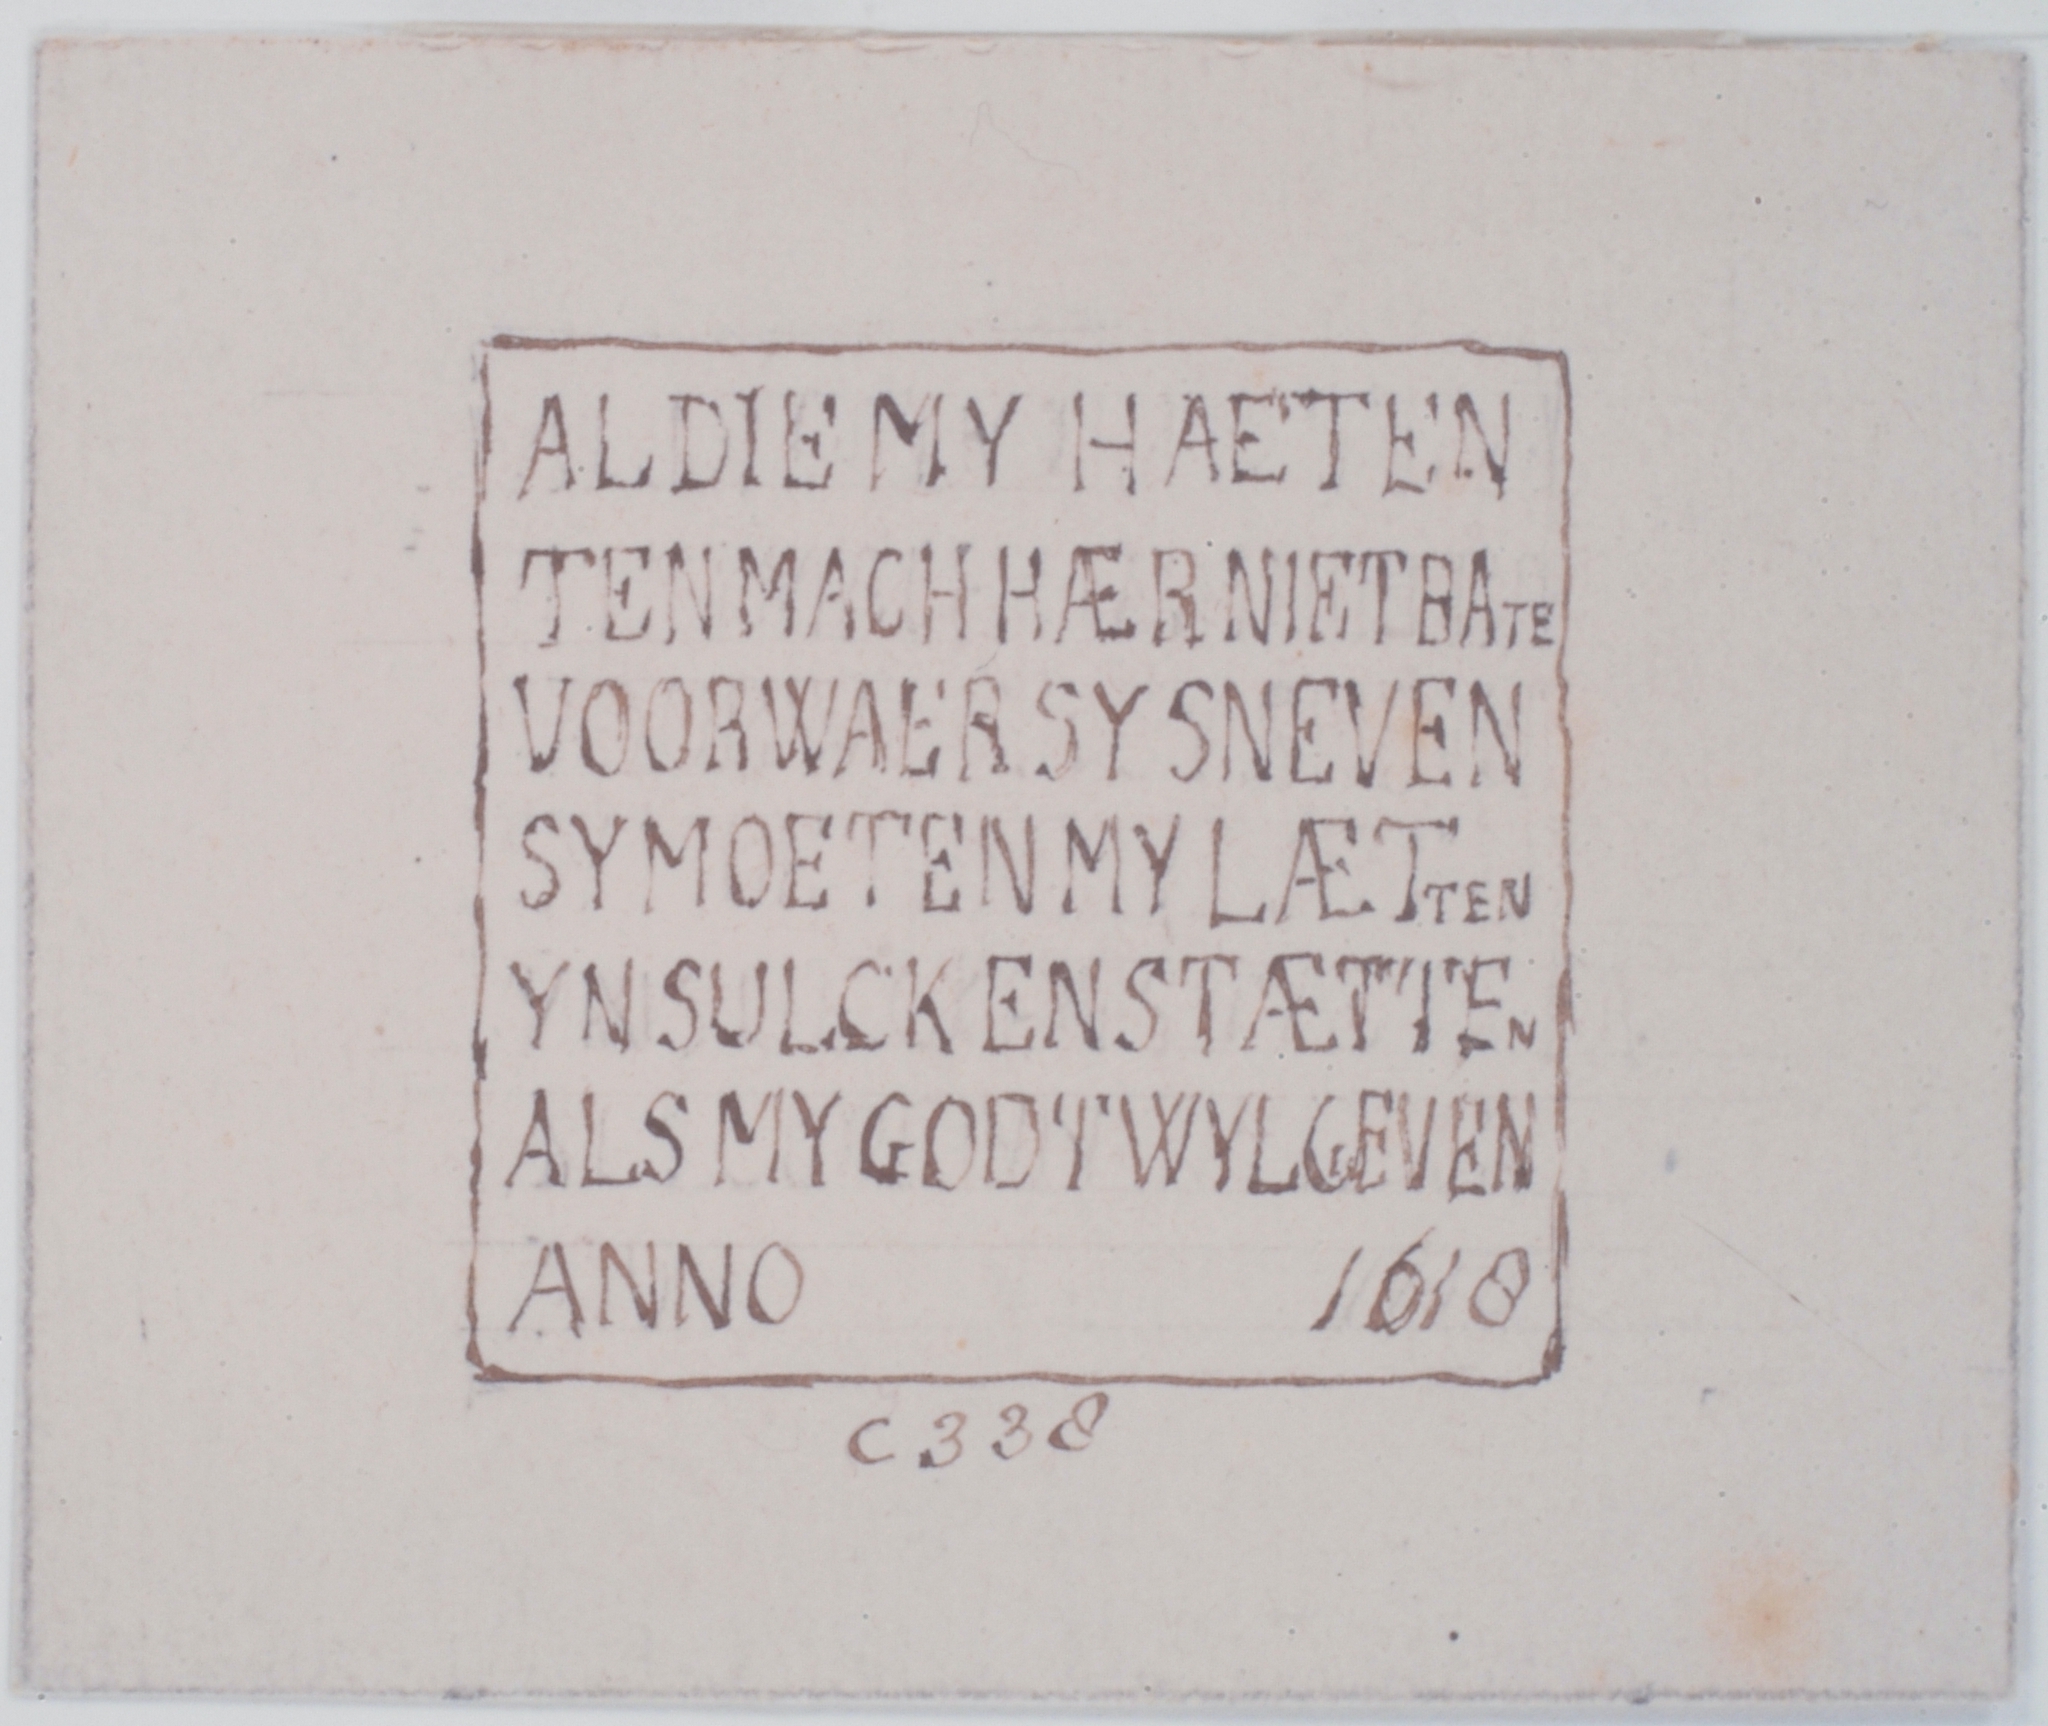 AL DIE MY HAETEN
TEN MACH HÆR NIET BATE
VOORWAER SY SNEVEN
SY MOETEN MY LÆTTEN
YN SULCKEN STÆTTEN
ALS MY GODT WYL GEVEN
ANNO 1618
C338